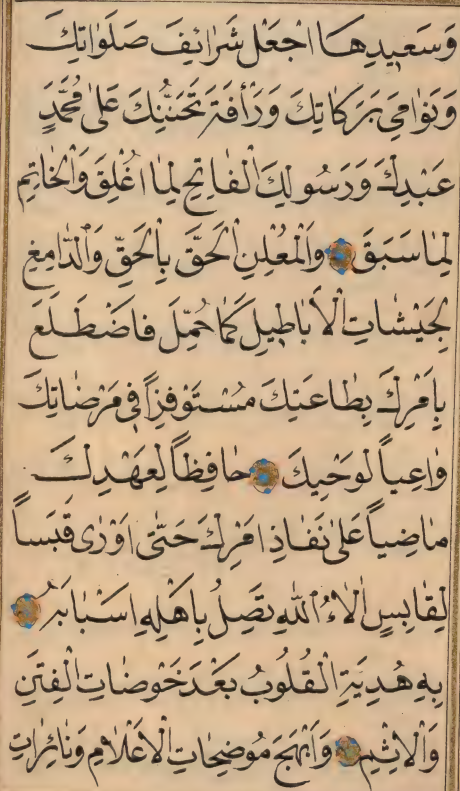 وَسَعِيدِهَا اجْعَلْ شَرَائِفَ صَلَوَاتِكَ
وَنَوَامِيَ بَرَكَاتِكَ وَرَأْفَةَ تَحَنُّنِكَ عَلَى مُحَمَّدٍ
عَبْدِكَ وَرَسُولِكَ الْفَاتِحِ لِمَا اُغْلِقَ وَالْخَاتِمِ
لِمَا سَبَقَ وَالْمُعْلِنِ الْحَقَّ بِالْحَقِّ وَالدَّامِغِ
لِجَيْشَاتِ الْاَبَاطِيلِ كَمَا حُمِّلَ فَاضْطَلَعَ
بِاَمْرِكَ بِطَاعَتِكَ مُسْتَوْفِزاً فِي مَرْضَاتِكَ
وَاعِياً لِوَحْيِكَ حَافِظاً لِعَهْدِكَ
مَاضِياً عَلَى نَفَاذِ اَمْرِكَ حَتَّى اَوْرَى قَبَساً
لِقَابِسٍ اٰلَاءُ اللّٰهِ تَصِلُ بِاَهْلِهِ اَسْبَابَهُ
بِهِ هُدِيَتِ الْقُلُوبُ بَعْدَ خَوْضَاتِ الْفِتَنِ
وَالْاِثْمِ وَاَبْهَجَ مُوضِحَاتِ الْاَعْلَامِ وَنَائِرَاتِ